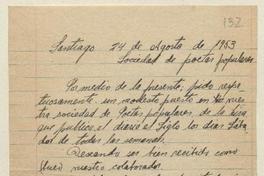 132
Santiago 24 de Agosto de 1953
Sociedad de poetas populares
Por medio de la presente, pido respe
tuosamente un modesto puesto en
sociedad de Poetas populares de la Lira
que publica el diario el Siglo los días Sába
dos de todas las semanas.
Deseando ser bien recibido como
nuestro colaborador